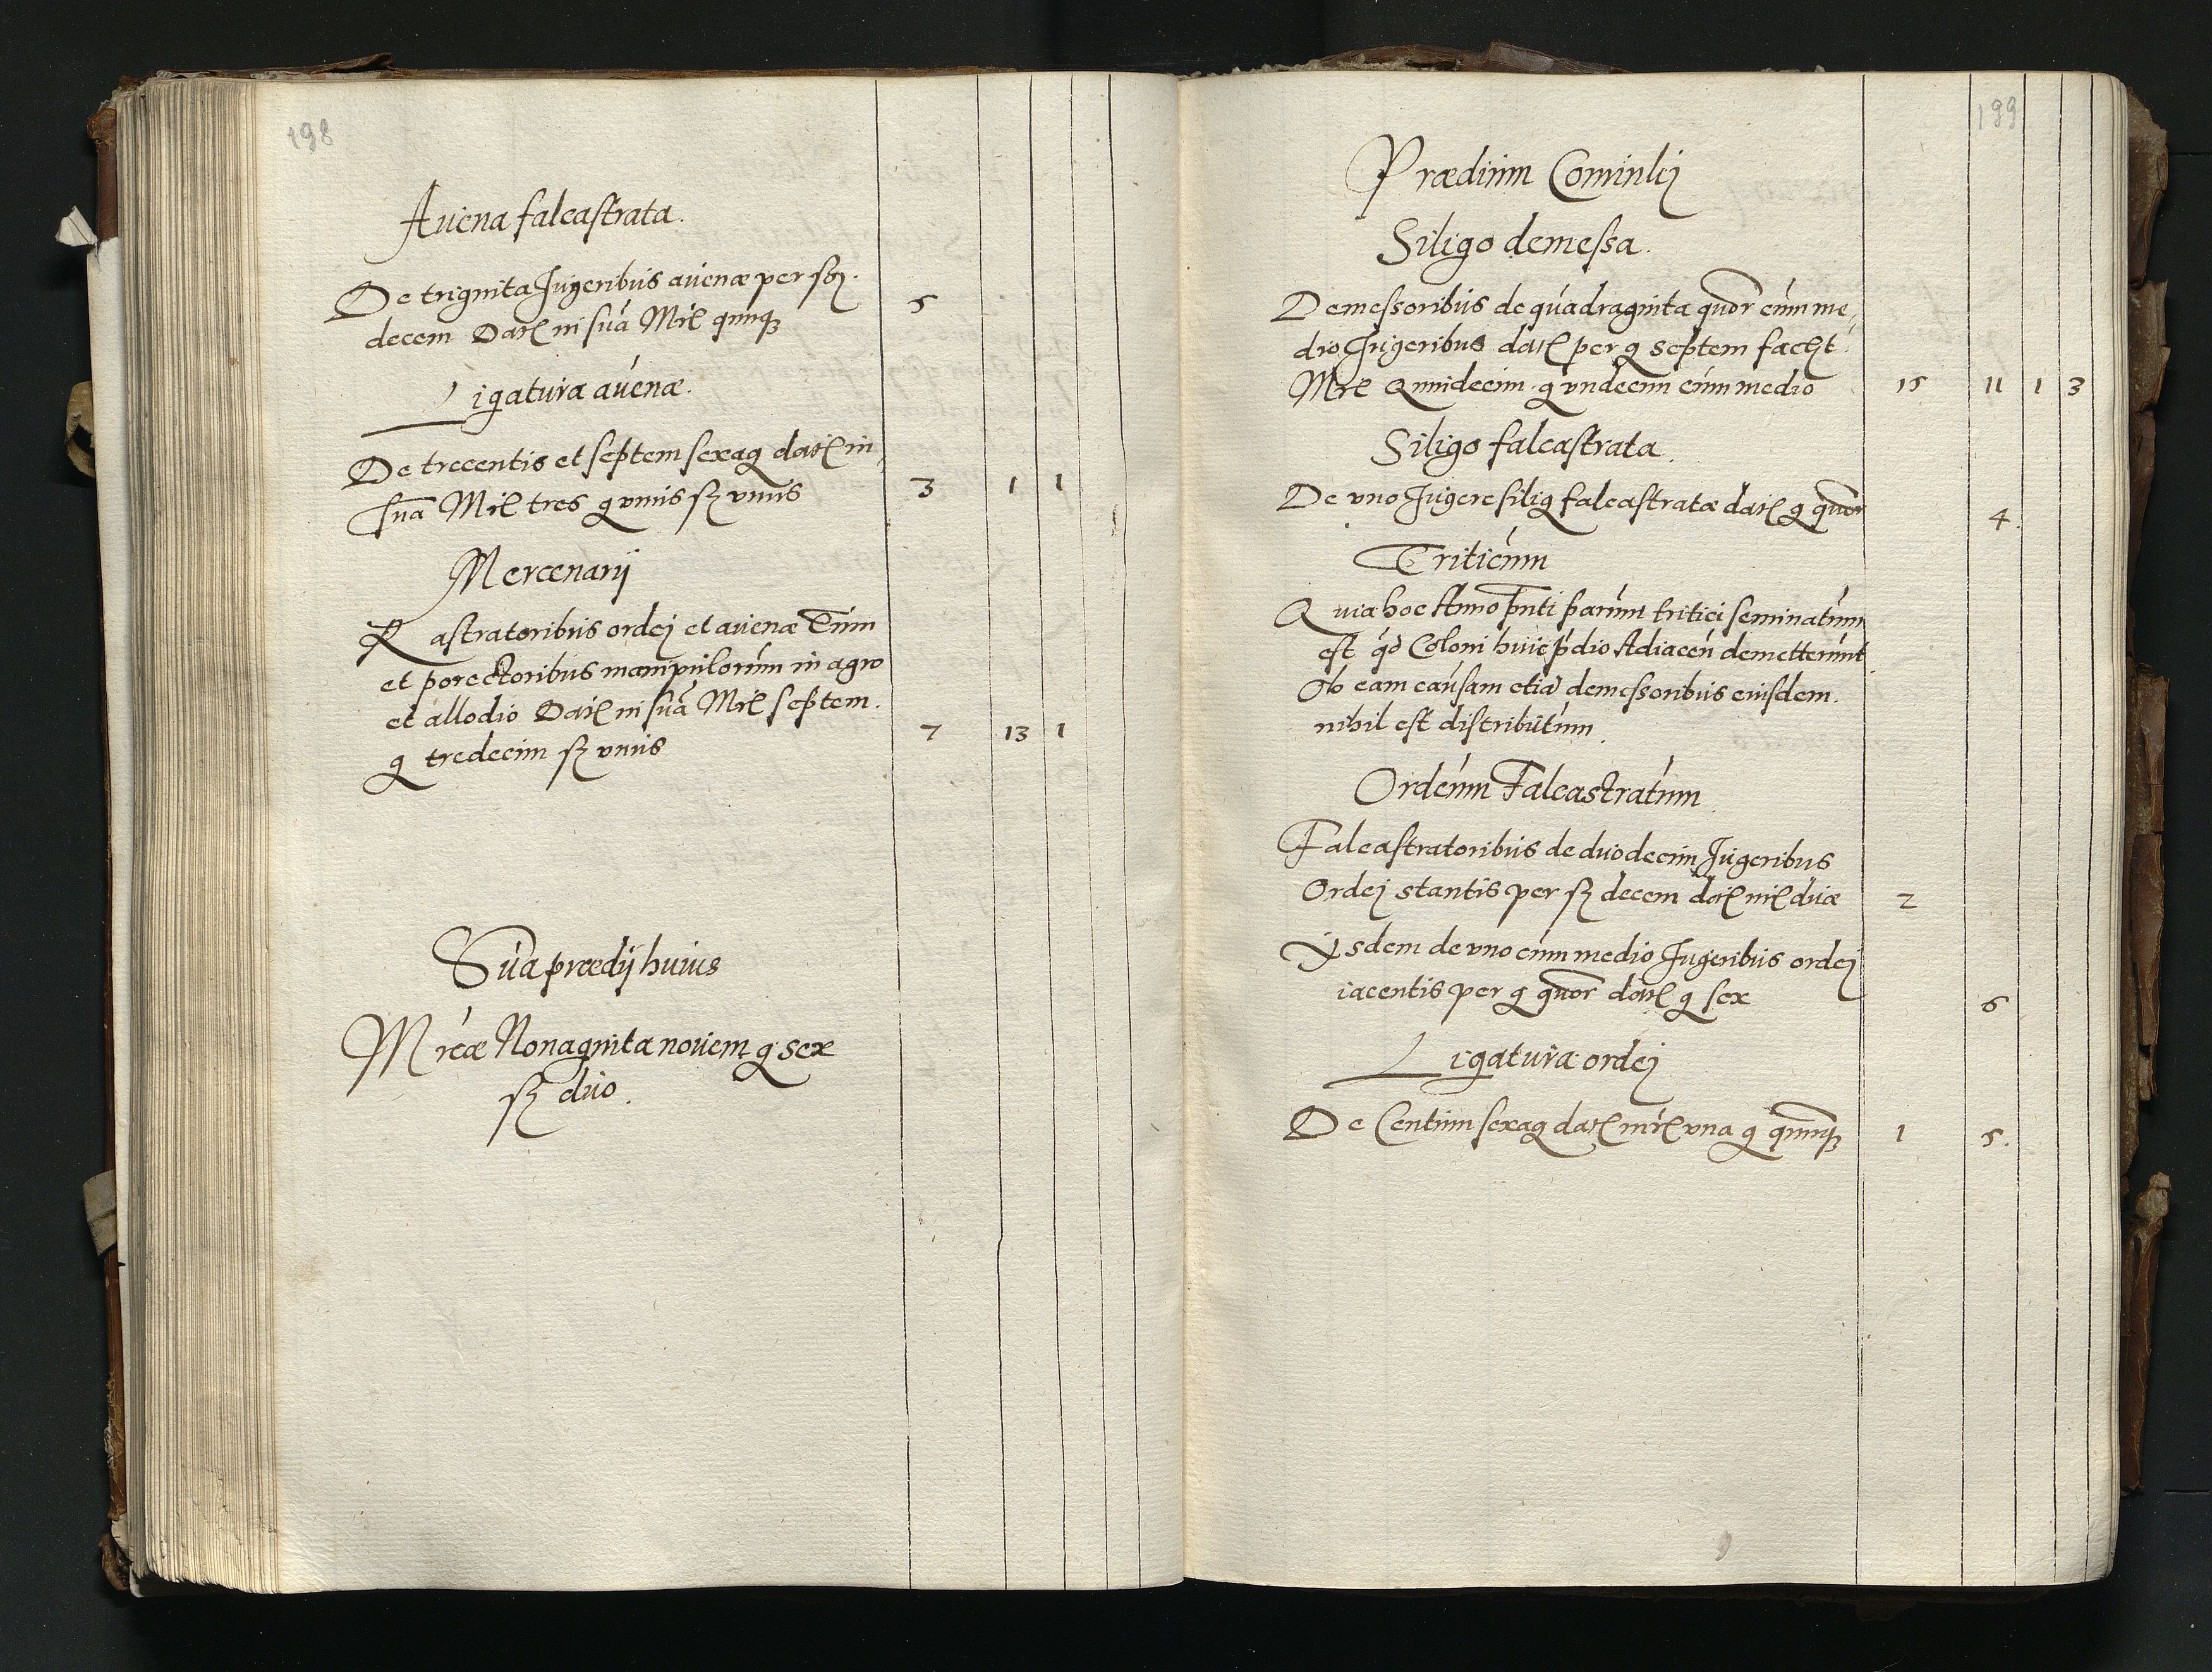 198
Auena falcastrata.
De triginta Jugeribus auenæ per sƺ.
decem Datƺ in sūa Mrƺ quinqƺ 5
Ligatura auenæ.
De trecentis et septem sexag datƺ in
Sūa Mrƺ tres g vnus sƺ vnus 3 1 1
Mercenarij
Rastratoribus ordej et auenæ Tum
et porectoribus manipulorum in agro
et allodio Datƺ in sūa Mrƺ septem.
g tredecim sƺ vnus 7 13 1
Sūa prædij huius
Mrcæ Nonaginta nouem g sex
sƺ duo.
199
Prædium Cominlej
Siligo demessa.
Demessoribus de quadraginta quor cum me,
dio Jugeribus datƺ per g septem facht.
Mrƺ Quindecim g vndecim cum medio 15 11 1 3
Siligo falcastrata.
De vno Jugere silig falcastratæ datƺ g quor 4.
Triticum
Quia hoc Anno pnti parum tritici seminatum
est qd Coloni huic pdio Adiacen demetterunt
Ob eam causam etia demessoribus eiusdem.
nihil est distributum.
Ordeum Falcastratum.
Falcastratoribus de duodecim Jugeribus
Ordej stantis per sƺ decem datƺ mrƺ duæ 2
Ijsdem de vno cum medio Jugeribus ordej
iacentis per g quor datƺ g sex 6
Ligatura ordej
De Centum sexag datƺ mrƺ vna g quinqƺ 1 5.